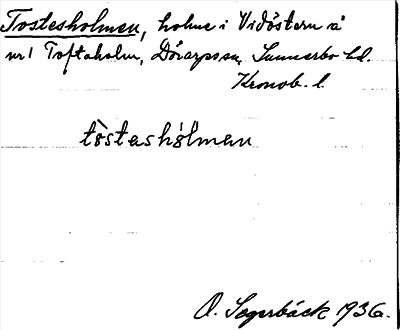 Tostesholmen, holme i Vidöstern å
nr 1 Toftaholm, Dörarps sn, Sunnerbo hd.
Kronob. l.
tòstashólman
O. Segerbäck 1936.